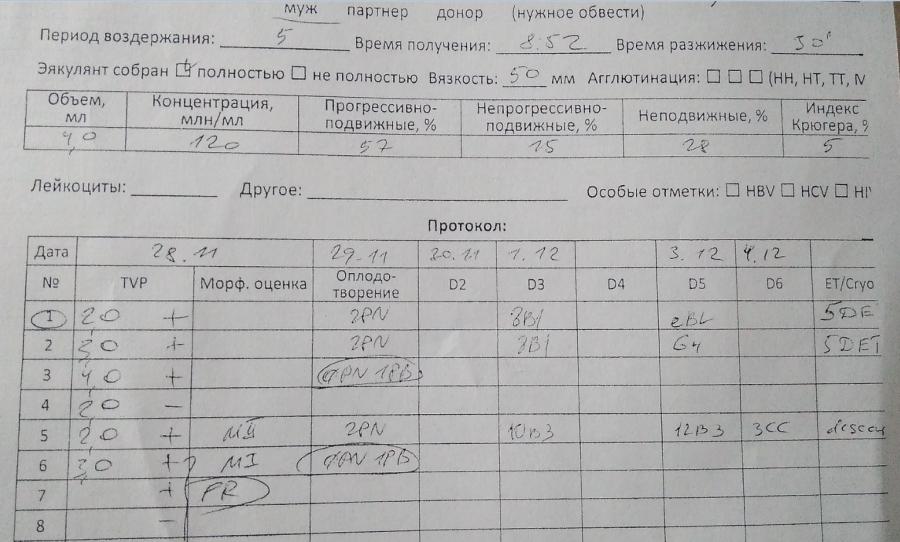 муж партнер донор (нужное обвести)
Период воздержания: 5 Время получения: 8:52 Время разжижения: 30'
Эякулянт собран полностью не полностью Вязкость: 50 мм Агглютинация: (НН, НТ, ТТ,
Объем, мл Концентрация, млн/мл Прогрессивно-подвижные, % Непрогрессивно-подвижные, % Неподвижные, % Индекс Крюгера, %
4,0 120 57 15 28 5
Лейкоциты: Другое: Особые отметки: HBV HCV
Протокол:
Дата 28.11 29.11 1.12 3.12 4.12
№ TVP Морф. оценка Оплодо-творение D2 D3 D4 D5 D6 ET/Cryo
1 2,0 + 2PN 8B1 5DE
2 3,0 + 2PN 8B1 5DET
3 4,0 + 1PB
4 2,0 -
5 2,0 + MII 2PN 10B3 12B3 3CC
6 3,0 + MI 1PB
7 + PR
8 -